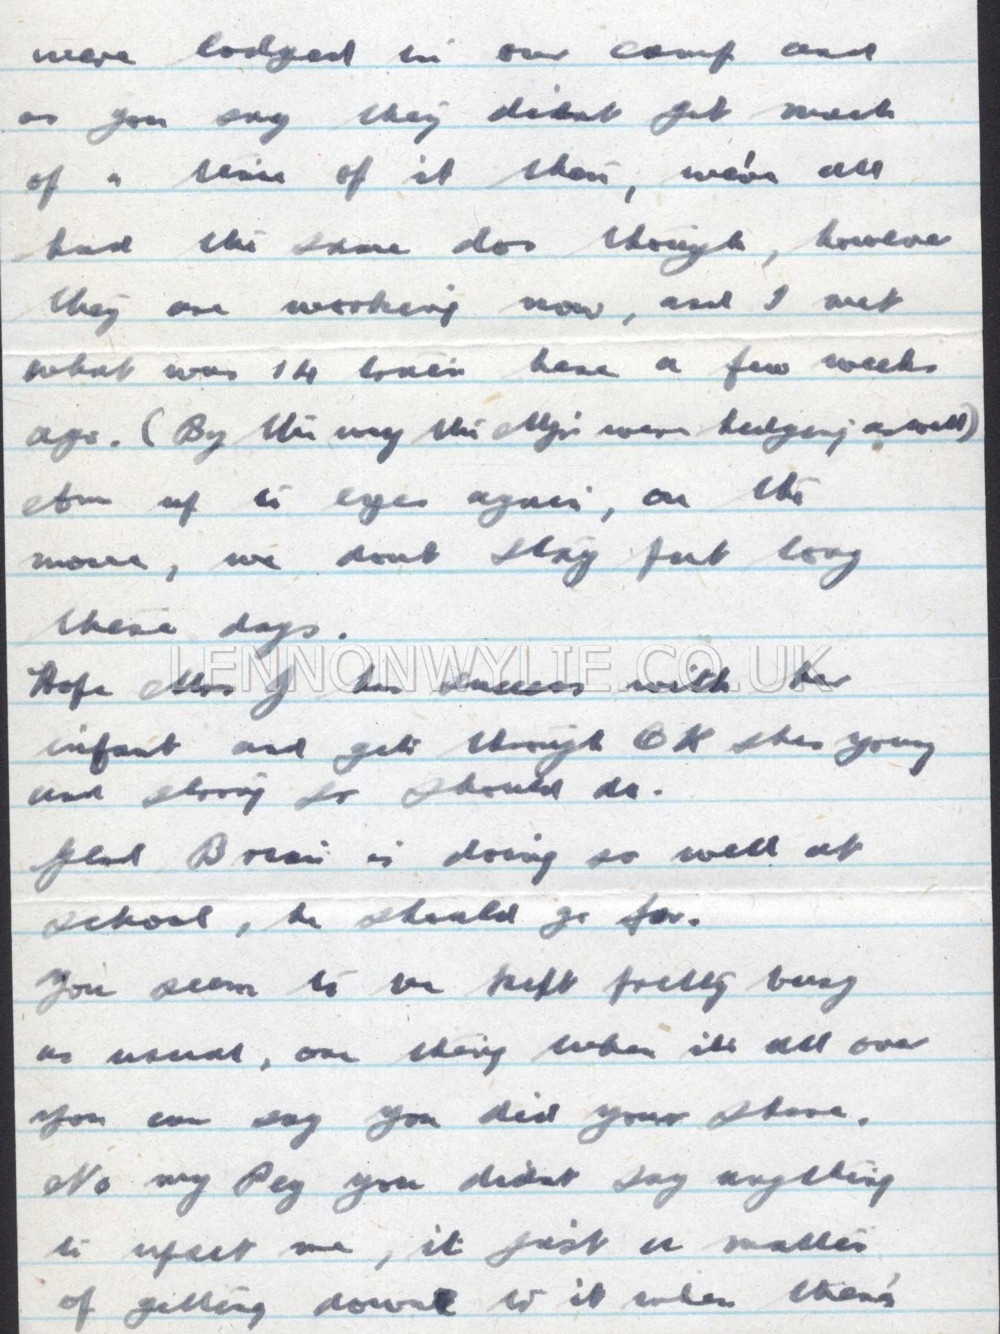 were lodged in our camp and
as you say they didnt get much
of a time of it then, we've all
had the same dos though, however
they are working now, and I met
what was 14 train here a few weeks
ago. (By the way the were hedging as well)
am up to eyes again, on the
move, we dont stay put long
these days.
LENNONWYLIE.CO.UK
Hope Mrs J has success with her
infant and gets through OK shes young
and strong so should do.
Glad Brian is doing so well at
school, he should go far.
You seem to be kept pretty busy
as usual, one thing when its all over
you can say you did your share.
No my Peg you didnt say anything
to upset me, it just a matter
of getting down to it when there's